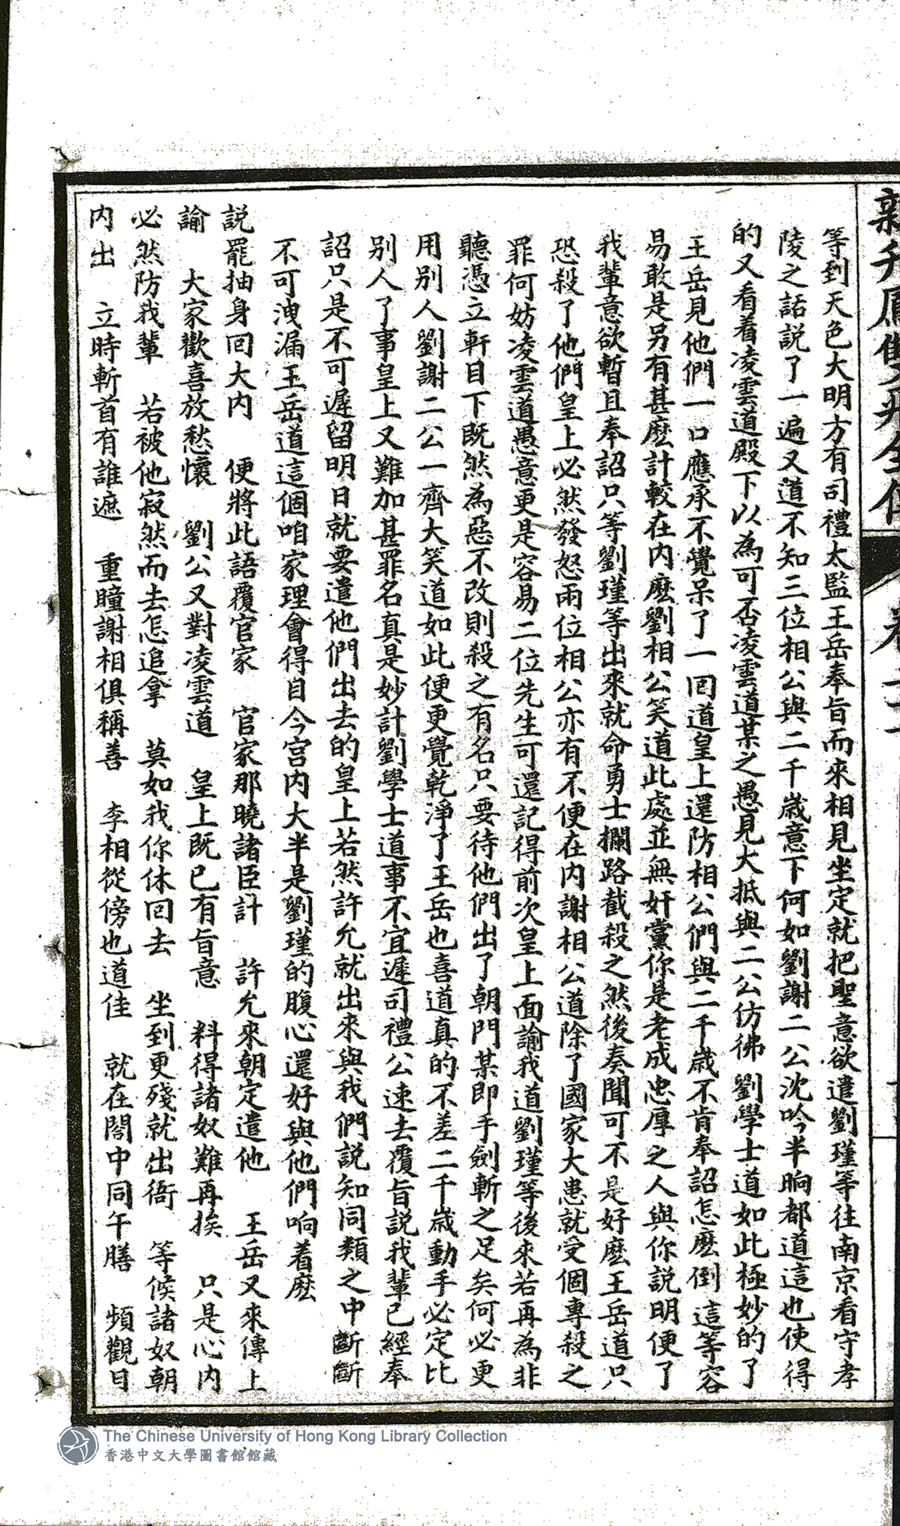 等到天色大明方有司禮太監王岳奉旨而來相見坐定就把聖意欲遣劉瑾等往南京看守孝
陵之話説了一遍又道不知三位相公與二千歲意下何如劉謝二公沈吟半晌都道這也使得
的又看着凌雲道殿下以為可否凌雲道某之愚見大抵與二公仿彿劉學士道如此極妙的了
王岳見他們一口應承不覺呆了一回道皇上還防相公們與二千歲不肯奉詔怎麽倒這等容
易敢是另有甚麽計較在内麽劉相公笑道此處並無奸黨你是老成忠厚之人與你説明便了
我輩意欲暫且奉詔只等劉瑾等出來就命勇士攔路截殺之然後奏聞可不是好麽王岳道只
恐殺了他們皇上必然發怒兩位相公亦有不便在内謝相公道除了國家大患就受個專殺之
罪何妨凌雲道愚意更是容易二位先生可還記得前次皇上面諭我道劉瑾等後來若再為非
聽憑立斬目下既然為惡不改則殺之有名只要待他們出了朝門某即手劍斬之足矣何必更
用别人劉謝二公一齊大笑道如此便更覺乾淨了王岳也喜道真的不差二千歲動手必定比
别人了事皇上又難加甚罪名真是妙計劉學士道事不宜遲司禮公速去覆旨説我輩已經奉
詔只是不可遲留明日就要遣他們出去的皇上若然許允就出來與我們説知同類之中斷斷
不可洩漏王岳道這個咱家理會得目今宫内大半是劉瑾的腹心還好與他們响着麽
説罷抽身回大内　便將此語覆官家　官家那曉諸臣計　許允來朝定遣他　王岳又來傳上
諭　大家歡喜放愁懷　劉公又對凌雲道　皇上既已有旨意　料得諸奴難再挨　只是心内
必然防我輩　若被他寂然而去怎追拿　莫如我你休回去　坐到更殘就出衙　等候諸奴朝
内出　立時斬首有誰遮　重瞳謝相俱稱善　李相從傍也道佳　就在閣中同午膳　頻觀日
The Chinese University of Hong Kong Library Collection
香港中文大學圖書館館藏